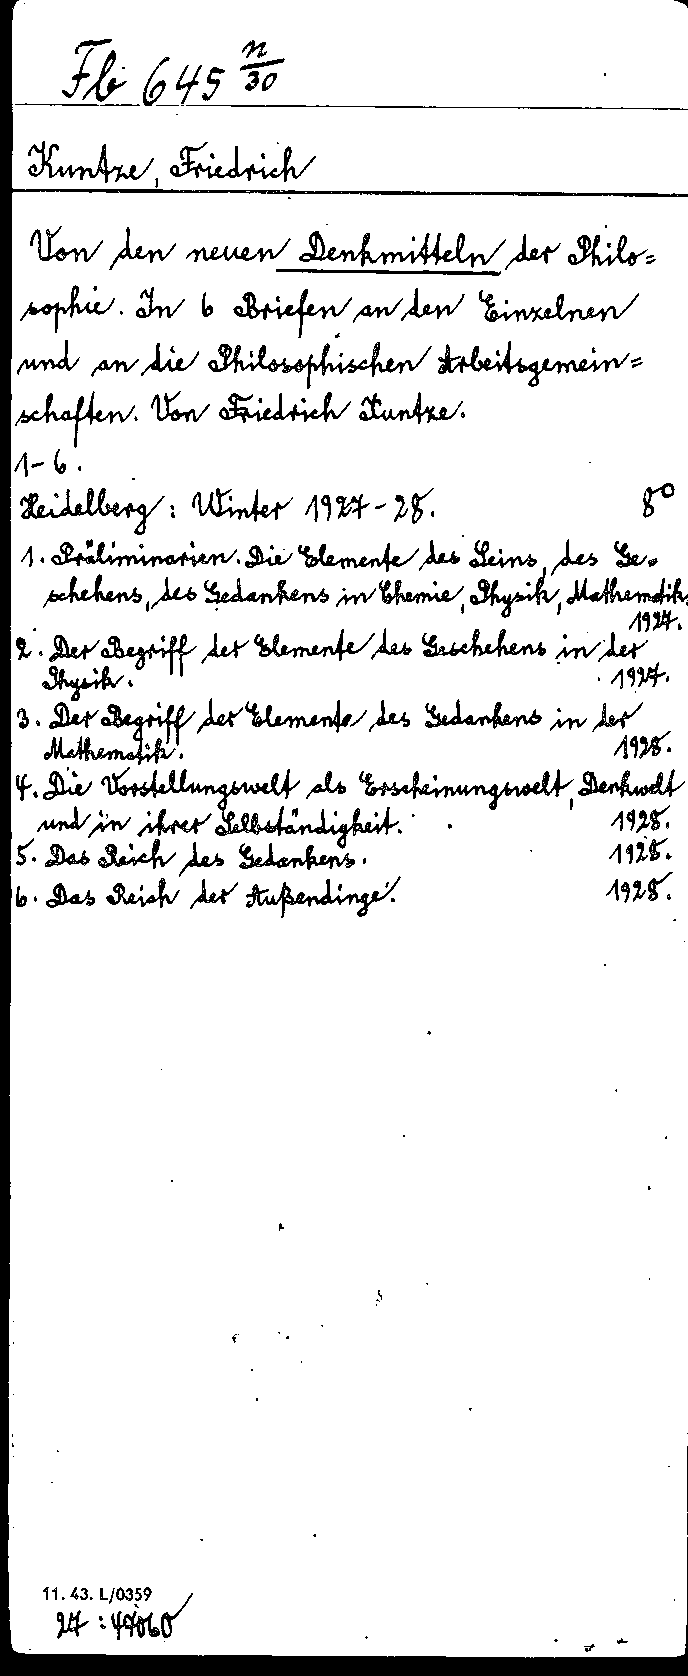 Fb 645 n/30
Kuntze, Friedrich
Von den neuen Denkmitteln der Philo=
sophie. In 6 Briefen an den Einzelnen
und an die Philosophischen Arbeitsgemein=
schaften. Von Friedrich Kuntze.
1-6.
Heidelberg: Winter 1927-28. 8°
1. Präliminarien. Die Elemente des Seins, des Ge=
schehens, des Gedankens in Chemie, Physik, Mathematik.
1927.
2. Der Begriff der Elemente des Geschehens in der
Physik. 1927.
3. Der Begriff der Elemente des Gedankens in der
Mathematik. 1928.
4. Die Vorstellungswelt als Erscheinungswelt, Denkwelt
und in ihrer Selbständigkeit. 1928.
5. Das Reich des Gedankens. 1928.
6. Das Reich der Außendinge. 1928.
11. 43. L/0359
27:47060